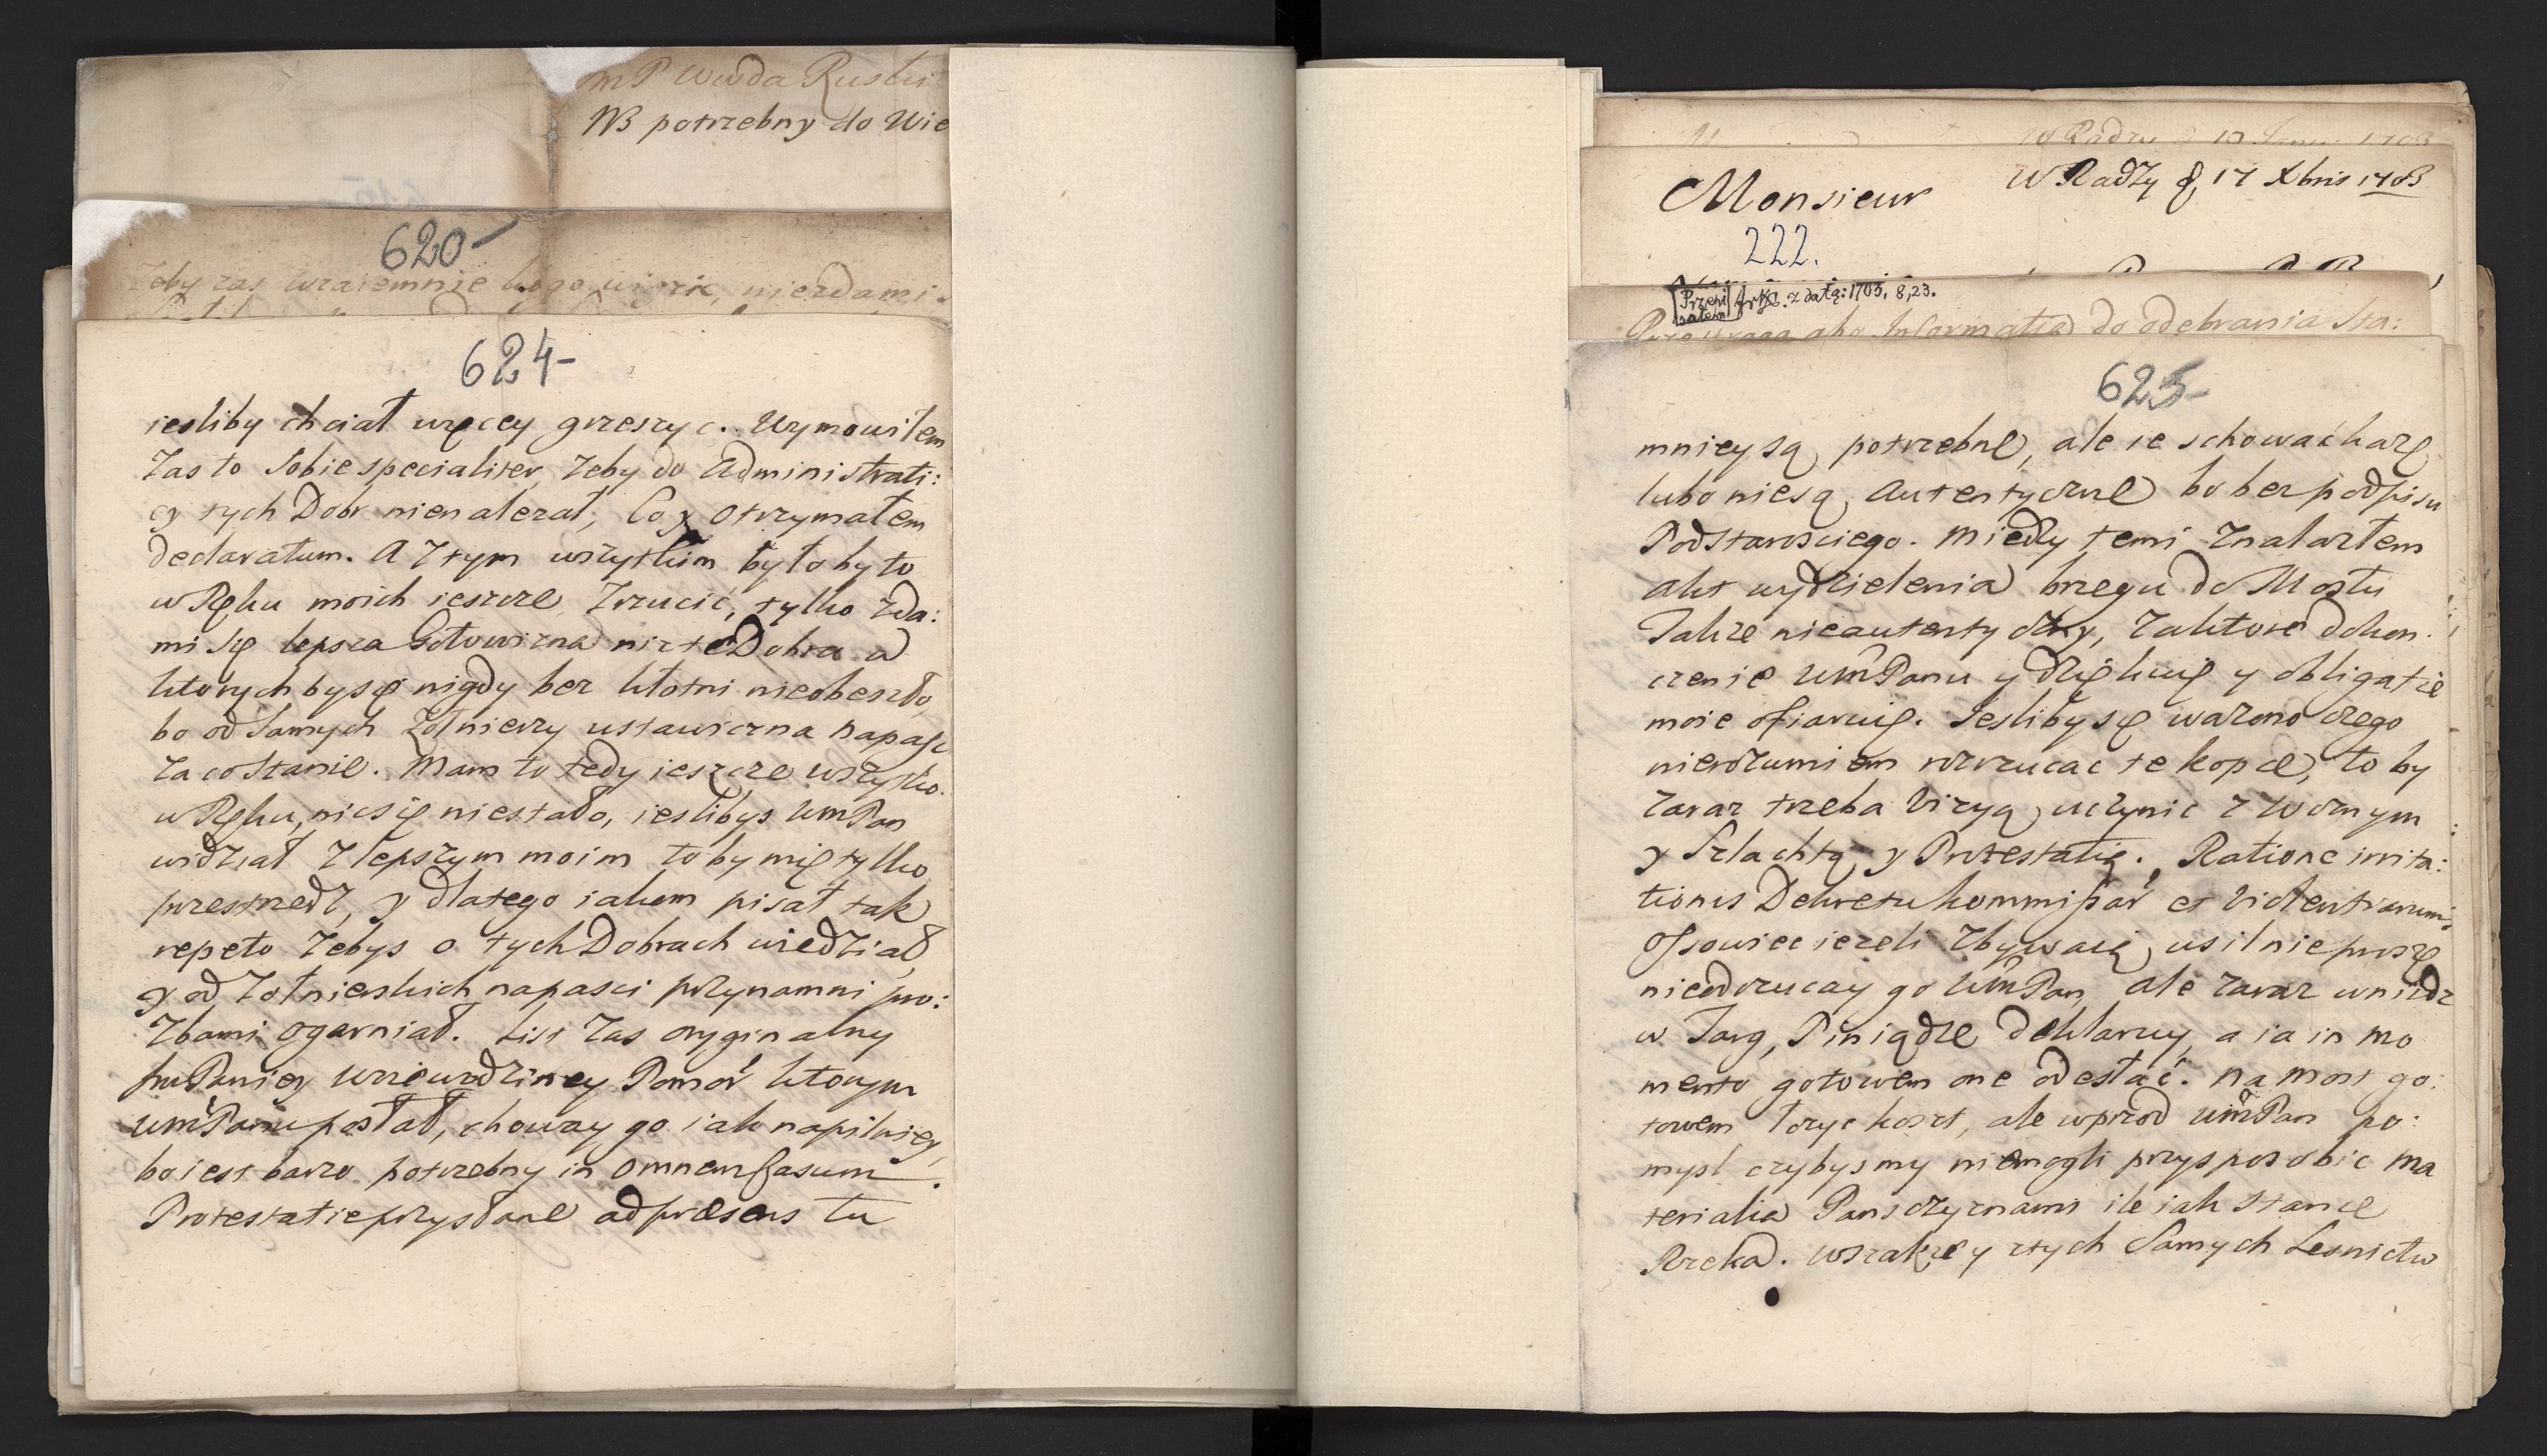 mP Wwda Ruski
NB potrzebny do Wie
620
zeby zas wzaiemnie kogo winic, niezdami
624
iesliby chciał więcey grzeszyc. Wymowiłem
zas to sobie specialiter, zeby do Administrati:
cy tych Dobr nienalezał, Co y otrzymałem
declaratum. A z tym wszytkim byłoby to
w Ręku moich ieszcze zrzucić, tylko zda:
mi się lepsza Gotowizna niz te Dobra a
ktorych by się nigdy bez kłotni nieobeszło,
bo od samych Zołnierzy ustawiczna napasc
za co stanie. Mam to tedy ieszcze wszytko
w Ręku, nic się niestało, ieslibys WmPan
widział z lepszym moim to by mię tylko
przestrzedz, y dlatego iakem pisał tak
repeto zebys o tych Dobrach wiedział,
y od zołnierskich napasci przynamni pro:
zbami ogarniał. List zas oryginalny
JmPaniey Woiewodziney Pomor ktorym
WmPanu posłał, choway go iak napilniey,
bo iest barzo potrzebny in omnem Casum.
Protestatie przysłane ad præsens tu
W Radzy 17 Xbris 1703
Monsieur
222.
Przepisałem z datą: 1703, 8,23.
abo Informatia do odebrania Sta:
625
mniey są potrzebne, ale ie schować kazę
lubo niesą Autentyczne bo bez podpisu
Podstarosciego. Miedzy temi znalazłem
akt wydzielenia brzegu do Mostu
Takze nieautentyczny, za ktore dokon:
czenie WmPanu y dziękuię y obligatie
moie ofiaruię. Iesliby się wazono czego
nierozumiem rozrzucac te kopce, to by
zaraz trzeba Vizyą uczynic z Woznym
y Szlachtą y Protestatią. Ratione irrita:
tionis Dekretu Kommissar et Violentiarum
Ossowiec iezeli zbywaią usilnie proszę
nieodrzucay go WmPan, ale zaraz wnidz
w Targ, Piniądze deklaruy, a ia in mo
mento gotowem one odesłać. na most go:
towem łozyc koszt, ale wprzod WmPan po:
mysl czybysmy niemogli przysposobic ma
terialia Panszczyznami ile iak stanie
Rzeka. Wszakze y z tych samych Lesnictw